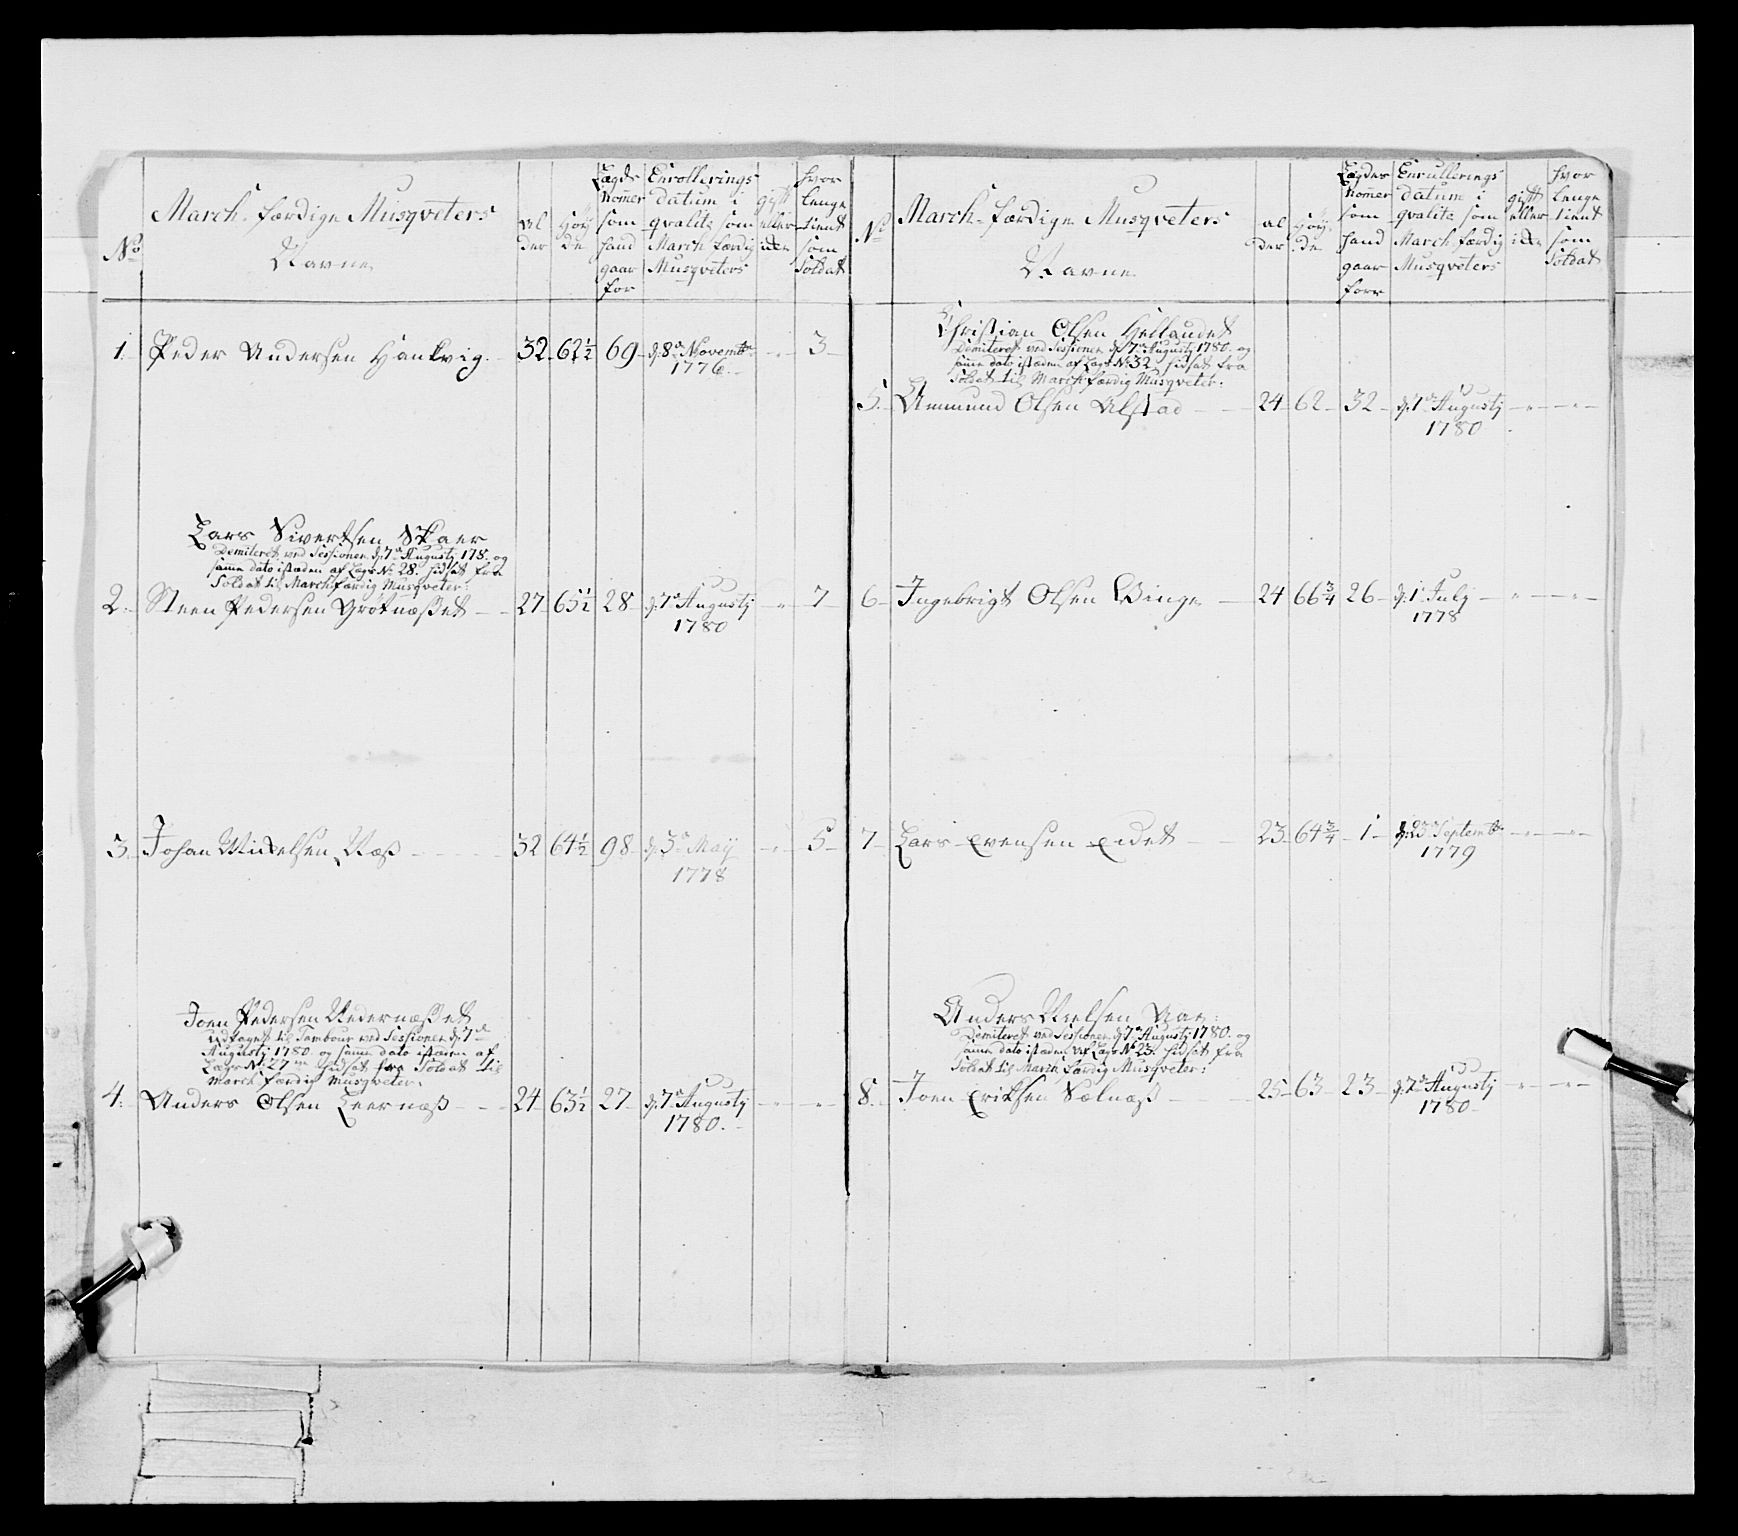 No
March-færdige Musqveters
Navne
al
der
Høy
de
Lægds
Nomer
som
hand
gaar
for
Enrollerings
datum i
qvalite som
March færdig
Musqveters
gift
eller
ikke
hvor
lenge
tient
som
Soldat
1. Peder Andersen 32 62½ 69 d: 8de Novembr 3
1776.
Lars Sivertsen Skaer
Demiteret ved Sessionen d: 7de Augustj 178. og
samme dato isteden af Lægd No 28. hidsat fra
Soldat til March færdig Musqveter:
2. Steen Pedersen Grotnæsset 27 65½ 28 d: 7de Augustj 7
1780
3. Johan Mikkelsen Næss 32 64½ 98 d: 3de Maij 5
1778
Joen Pedersen Nedernæsset
udtaget til Tambour ved Sessionen d: 7de
Augustj 1780 og samme dato isteden af
Lægd No 27 hidsat fra Soldat til
March færdig Musqveter:
4. Anders Olsen Leernæss 24 63½ 27 d: 7de Augustj
1780.
No
March-færdige Musqveters
Navne
al
der
Høy
de
Lægdes
Nomer
som
hand
gaar
forr
Enrullerings
datum i
qvalite som
March færdig
Musqveters
gift
eller
ikke
hvor
lenge
tient
som
Soldat
Christian Olsen Hellandet
Demiteret ved Sessionen d: 7de Augustj 1780. og
samme dato isteden af Lægd No 32 hidsat fra
Soldat til March færdig Musqveter:
5. Ammund Olsen Alstad 24 62 32 d: 7de Augustj
1780
6 Ingebrigt Olsen Venge 24 66¾ 26 d: 1 Julij
1778
7 Lars Evensen Eidet 23 64¾ 1 d: 23de Septembr
1779
Anders Nielsen
Demiteret ved Sessionen d: 7de Augustj 1780. og
samme dato isteden af Lægd No 23. hidsat fra
Soldat til March færdig Musqveter:
8. Joen Eriksen Sælnæss 25 63 23 d: 7de Augustj
1780